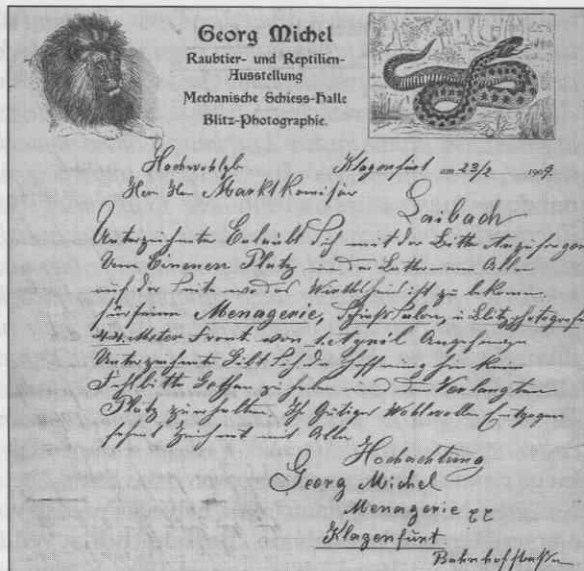 Georg Michel
Raubtier- und Reptilien-
Ausstellung
Mechanische Schiess-Halle
Blitz-Photographie.
Hochwohlgb Klagenfurt am 23/2 1909.
Herr Herr Marktkomisär
Laibach
Unterzeichneter Erlaubt Sich mit der Bitte Anzufragen
einen Platz in der Lattermann Allee
auf der Seite wo das Wirtshaus ist zu bekommen
für seine Menagerie, Schießsalon, u Blitzphotografie
44 Meter Front von 1. April Angefangen
Unterzeichneter Gibt Sich der Hoffnung hin kein
Fehlbitte Gethan zu haben und den Verlangten
Platz zu erhalten Ihr Gütiger Wohlwollen Entgegen
sehend Zeichnet mit Aller
Hochachtung
Georg Michel
Menagerie
Klagenfurt
Bahnhofstraße